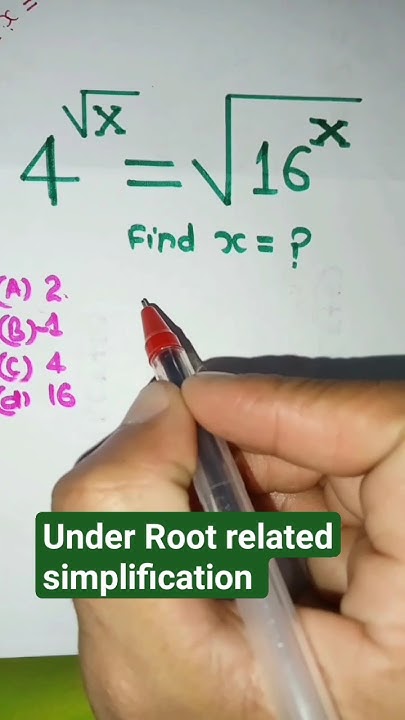 4^√x = √16^x
Find x = ?
(A) 2.
(B) 1
(C) 4
(d) 16
Under Root related
simplification